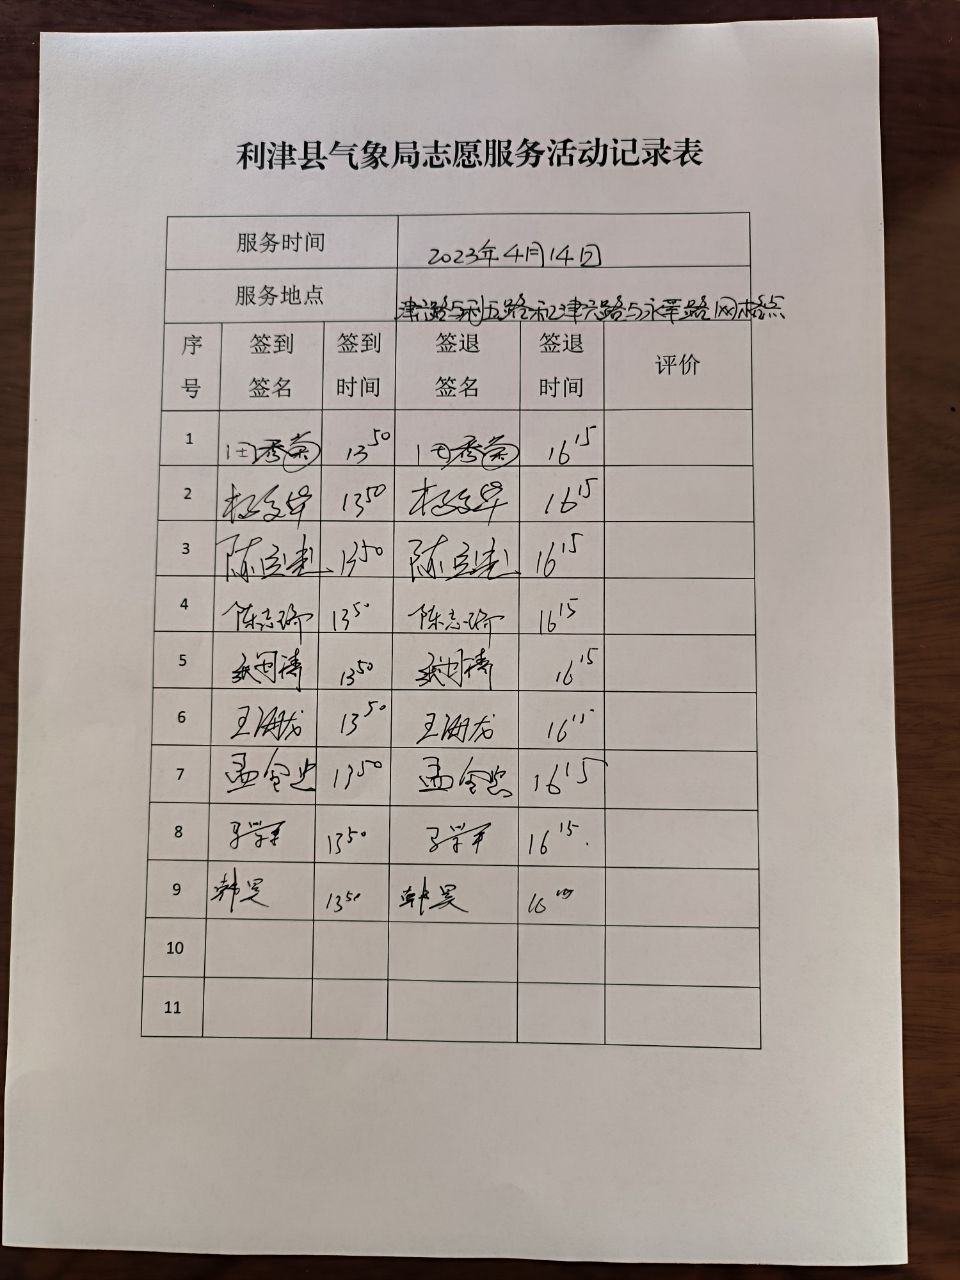 利津县气象局志愿服务活动记录表
服务时间 2023年4月14日
服务地点 津六路与利五路和津六路与永莘路网格点
序号 签到签名 签到时间 签退签名 签退时间 评价
1 田秀菊 13 50 田秀菊 16 15
2 13 50 16 15
3 13 50 16 15
4 陈志琦 13 50 陈志琦 16 15
5 13 50 16 15
6 王海龙 13 50 王海龙 16 15
7 孟金忠 13 50 孟金忠 16 15
8 13 50 16 15
9 韩昊 13 50 韩昊 16
10
11